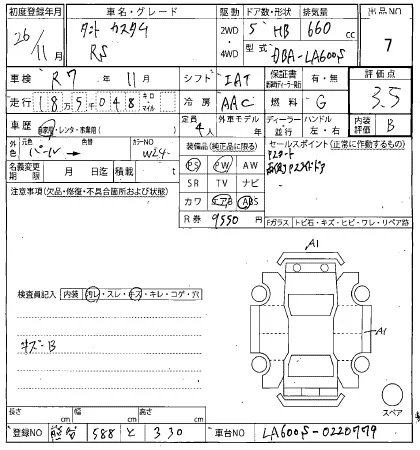 初度登録年月 車名・グレード 駆動 ドア数・形状 排気量 出品NO
26/11月 タント カスタム RS 2WD 4WD 5 HB 660 cc 7
型式 DBA-LA600S
車検 R7 年 11 月 シフト IAT 保証書 有・無 評価点
走行 1 8 万 5 千 0 4 8 キロ マイル 冷房 AAC 燃料 G 3.5
車歴 自家用・レンタ・事業用( ) 定員 4人 外車モデル 年 ディーラー 並行 ハンドル 左・右 内装評価 B
外色 元色 パール 色替 カラーNO W24 装備品(純正品に限る) セールスポイント(正常に作動する)
Pスタート
名義変更期限 月 日迄 積載 t PS PW AW
注意事項(欠品・修復・不具合箇所および状態) SR TV ナビ
カワ エアB ABS
R券 9550 円 Fガラス トビ石・キズ・ヒビ・ワレ・リペア跡
A1
検査員記入 内装 汚レ・スレ・キズ・キレ・コゲ・穴
A1
キズB
スペア
長さ cm 幅 cm 高さ cm
登録NO 588 と 330 車台NO LA600S-0220779